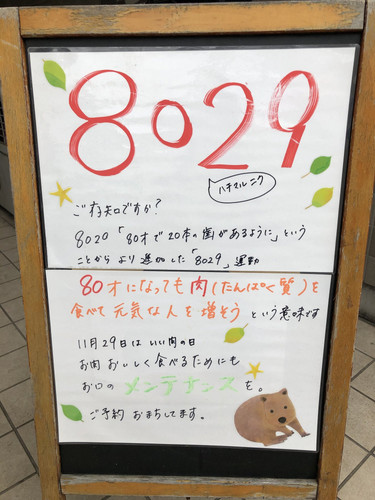 8029
ハチマルニク
ご存知ですか?
8020「80才で20本の歯があるように」という
ことから より進化した「8029」運動
80才になっても肉(たんぱく質)を
食べて元気な人を増そう という意味です
11月29日は いい肉の日
お肉おいしく食べるためにも
お口のメンテナンスを。
ご予約 おまちしてます。